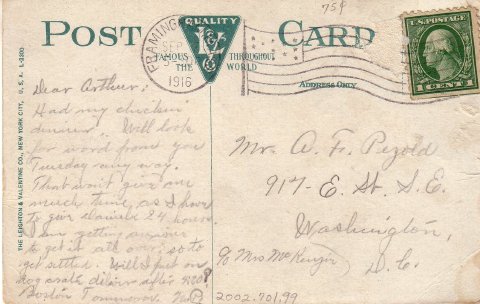 POST CARD
75¢
FRAMING
SEP
1916
QUALITY
L V
FAMOUS THROUGHOUT
THE WORLD
U.S. POSTAGE
1 CENT 1
ADDRESS ONLY
THE LEIGHTON & VALENTINE CO., NEW YORK CITY, U. S. A.
Dear Arthur:
Had my chicken
dinner. Will look
for word from you
Tuesday any way.
That won't give me
much time, as I have
to give Dannie 24 hours.
I am getting anxious
to get it all over, so to
get settled. Will I put on
after
Boston Tomorrow.
Mr. A. F. Pezold
917 - E. St. S.E.
Washington,
D.C.
c/o Mrs McKenzie
2002.701.99